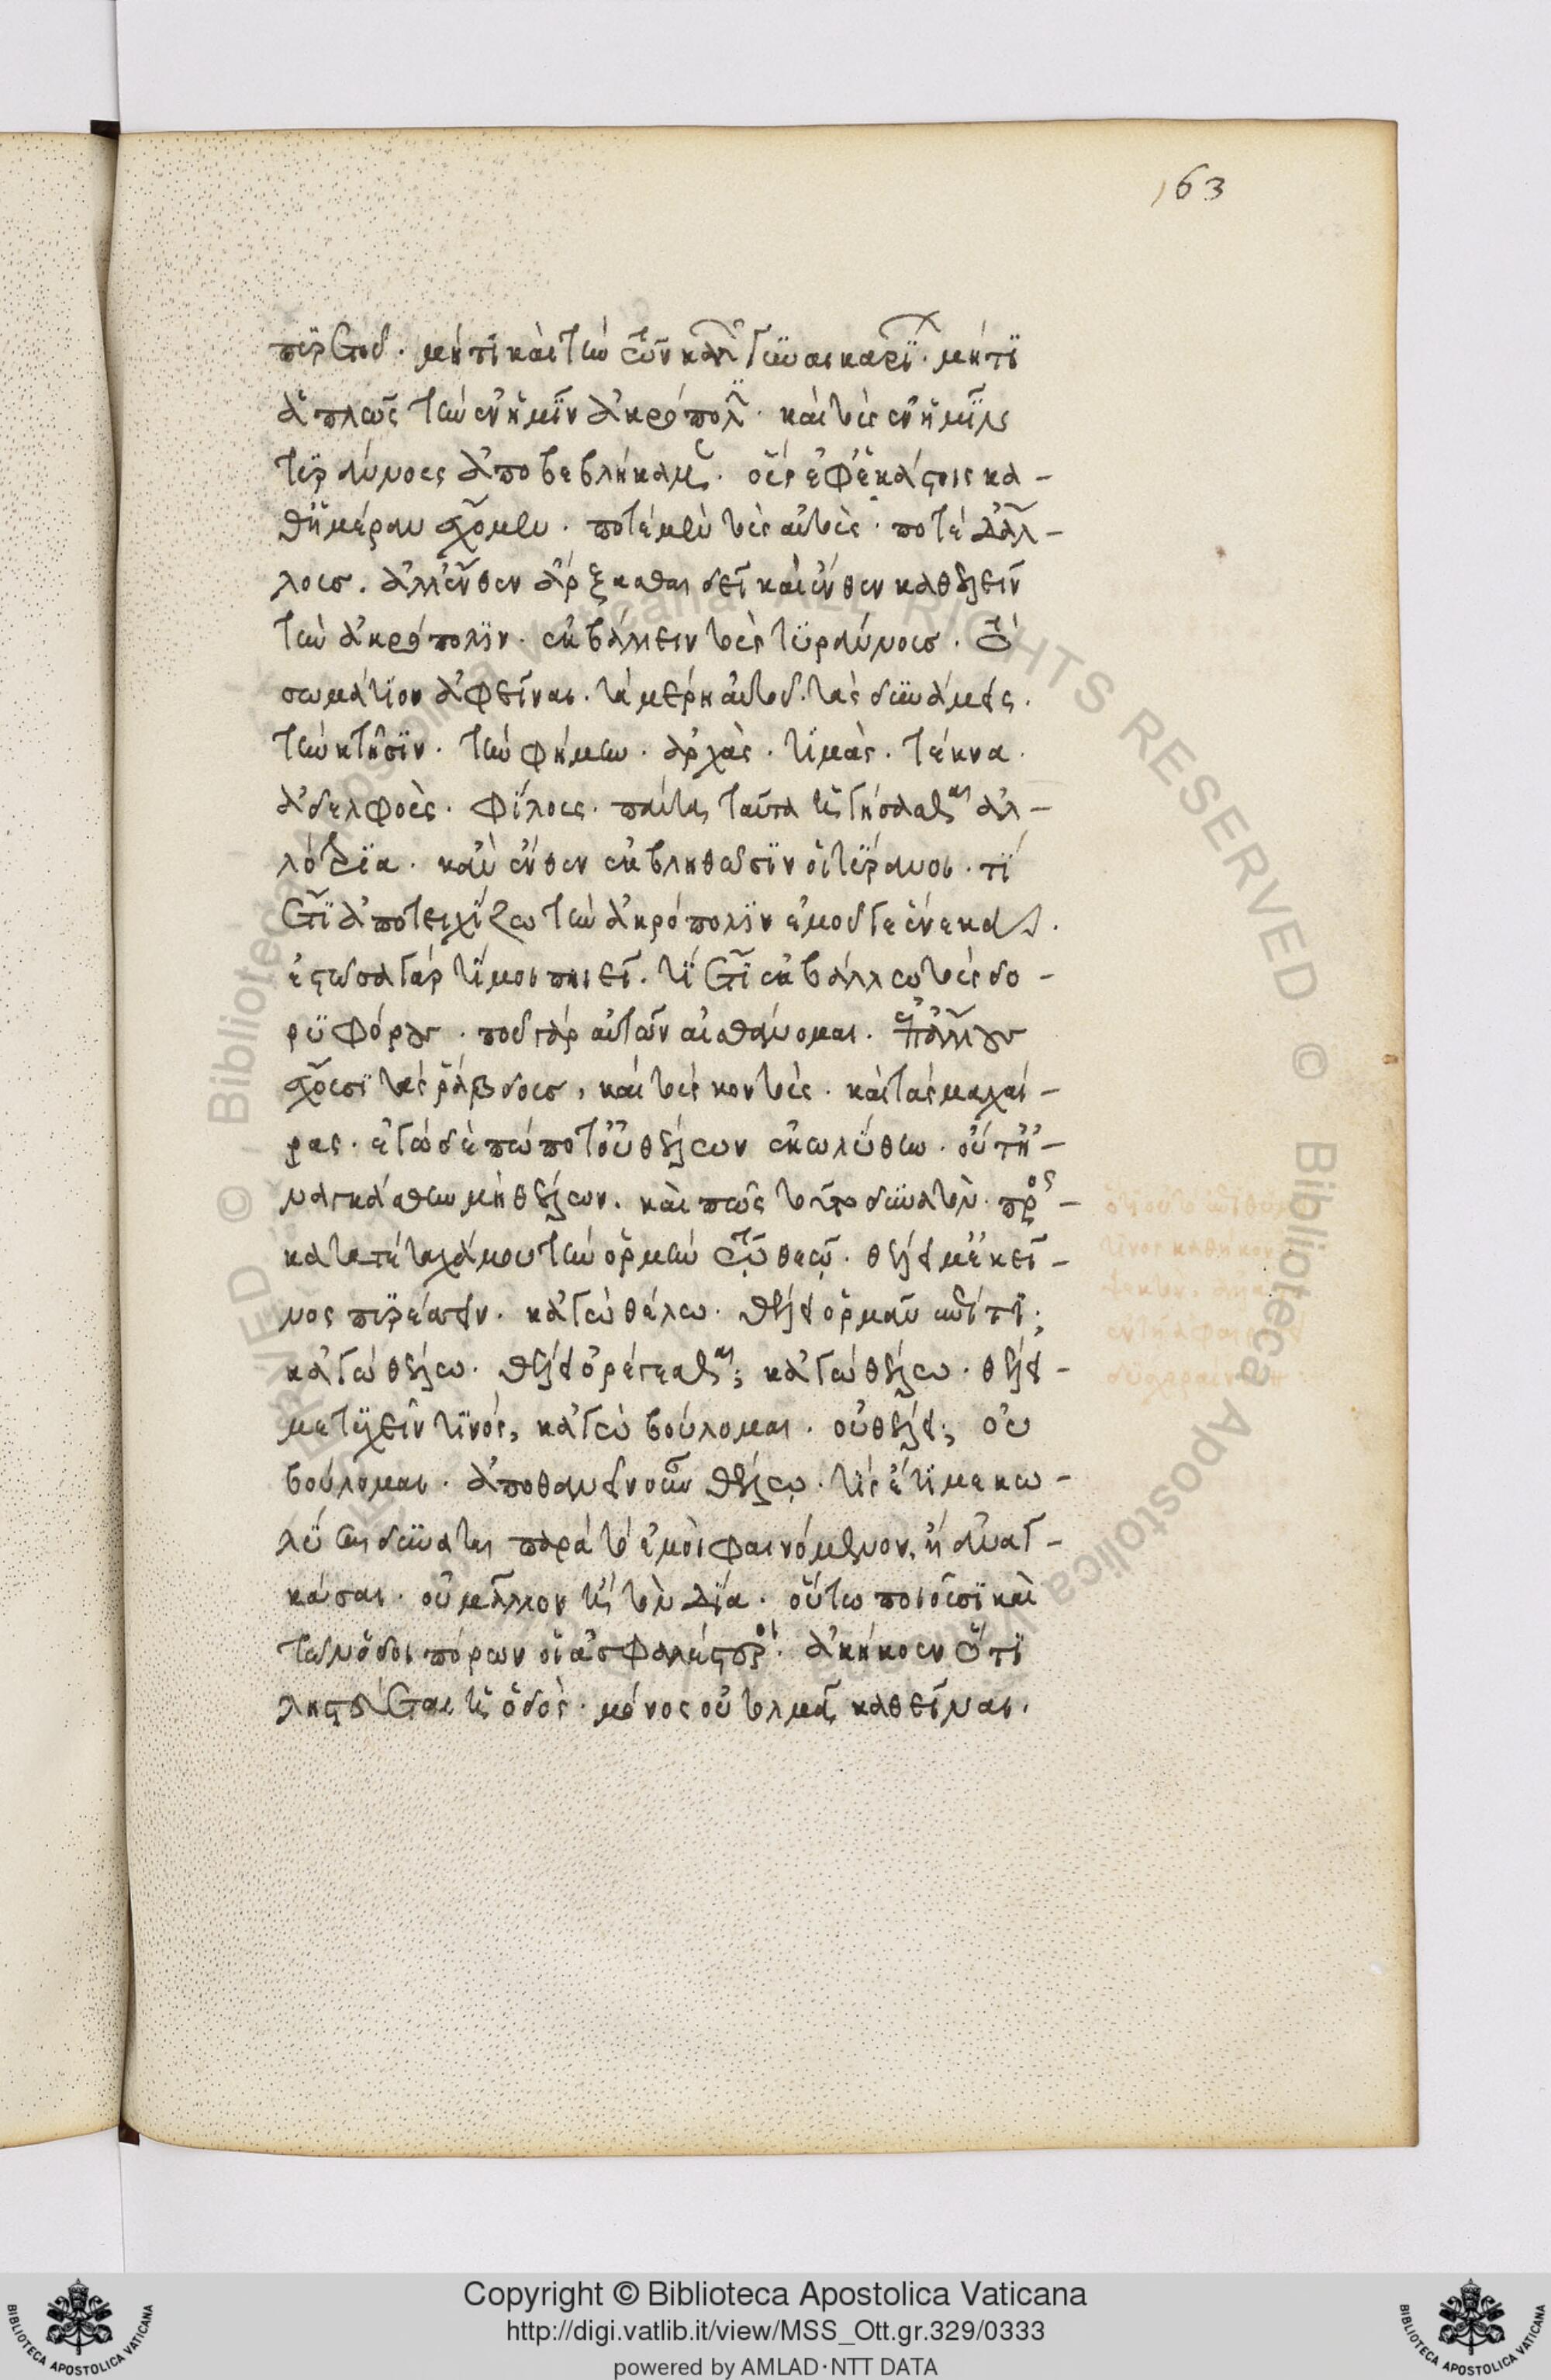 163
πυρετοῦ. μή τι καὶ τὴν τῶν καλῶν γυναικαρίων. μή τι
ἁπλῶς τὴν ἐν ἡμῖν ἀκρόπολιν. καὶ τοὺς ἐν ἡμῖν
τυράννους ἀποβεβλήκαμεν. οὓς ἐφ' ἑκάστοις κα-
θ' ἡμέραν ἔχομεν. ποτὲ μὲν τοὺς αὐτοὺς. ποτὲ δ' ἄλ-
λους. ἀλλ' ἔνθεν ἄρξασθαι δεῖ καὶ ἔνθεν καθελεῖν
τὴν ἀκρόπολιν. ἐκβάλλειν τοὺς τυράννους. τὸ
σωμάτιον ἀφεῖναι. τὰ μέρη αὐτοῦ. τὰς δυνάμεις.
τὴν κτῆσιν. τὴν φήμην. ἀρχὰς. τιμὰς. τέκνα.
ἀδελφοὺς. φίλους. πάντα ταῦτα ἡγήσασθαι ἀλ-
λότρια. κἂν ἔνθεν ἐκβληθῶσιν οἱ τύραννοι. τί
ἔτι ἀποτειχίζω τὴν ἀκρόπολιν ἐμοῦ γε ἕνεκα.
ἑστῶσα γὰρ τί μοι ποιεῖ. τί ἔτι ἐκβάλλω τοὺς δο-
ρυφόρους. ποῦ γὰρ αὐτῶν αἰσθάνομαι. ἐπ' ἄλλους
ἔχουσι τὰς ῥάβδους, καὶ τοὺς κοντοὺς. καὶ τὰς μαχαί-
ρας. ἐγὼ δὲ πώποτ' οὐ θέλων ἐκωλύθην. οὔτ' ἠ-
ναγκάσθην μὴ θέλων. καὶ πῶς τοῦτο δυνατὸν. προσ-
κατατέταχά μου τὴν ὁρμὴν τῷ θεῷ. θέλει μ' ἐκεῖ-
νος πυρέσσειν. κἀγὼ θέλω. θέλει ὁρμᾶν ἐπί τι;
κἀγὼ θέλω. θέλει ὀρέγεσθαι; κἀγὼ θέλω. θέλει
με τυχεῖν τινός, κἀγὼ βούλομαι. οὐ θέλει; οὐ
βούλομαι. ἀποθανεῖν οὖν θέλω. τίς ἔτι με κω-
λῦσαι δύναται παρὰ τὸ ἐμοὶ φαινόμενον, ἢ ἀναγ-
κάσαι. οὐ μᾶλλον ἢ τὸν Δία. οὕτω ποιοῦσι καὶ
τῶν ὁδοιπόρων οἱ ἀσφαλέστεροι. ἀκήκοεν ὅτι
λῃστεύεται ἡ ὁδὸς. μόνος οὐ τολμᾷ καθεῖναι.
Copyright © Biblioteca Apostolica Vaticana
http://digi.vatlib.it/view/MSS_Ott.gr.329/0333
powered by AMLAD·NTT DATA